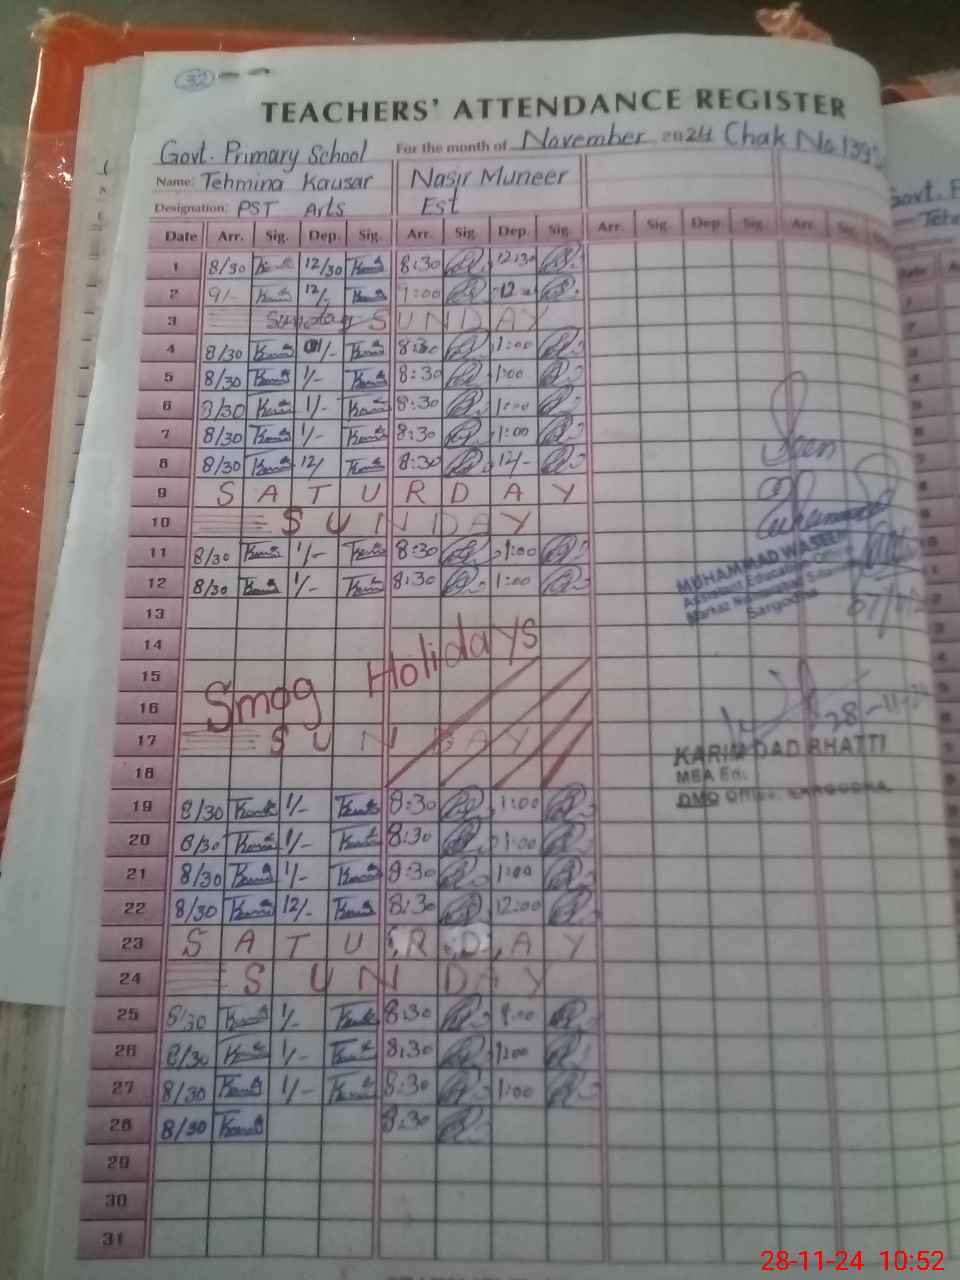 32
TEACHERS' ATTENDANCE REGISTER
Govt. Primary School For the month of November 2024 Chak No.
Name: Tehmina Kausar Nasir Muneer
Designation: PST Arts Est
Date Arr. Sig. Dep. Sig. Arr. Sig. Dep. Sig. Arr. Sig. Dep Sig. Arr. Sig.
1 8/30 12/30 8:30 12:30
2 9/- 12/- 9:00 12
3 Sunday SUNDAY
4 8/30 01/- 8:30 1:00
5 8/30 1/- 8:30 1:00
6 8/30 1/- 8:30 1:00
7 8/30 1/- 8:30 1:00
8 8/30 12/ 8:30 12/-
9 SATURDAY
10 SUNDAY
11 8/30 1/- 8:30 1:00
12 8/30 1/- 8:30 1:00
13
14
15
16 Smog Holidays
17 SUNDAY
18
19 8/30 1/- 8:30 1:00
20 8/30 1/- 8:30 1:00
21 8/30 1/- 8:30 1:00
22 8/30 12/- 8:30 12:00
23 SATURDAY
24 SUNDAY
25 8/30 1/- 8:30 1:00
26 8/30 1/- 8:30 1:00
27 8/30 1/- 8:30 1:00
28 8/30 8:30
29
30
31
Seen
MUHAMMAD WASEEM
Assistant Education Officer
Markaz
Sargodha
28-11-24
KARIM DAD BHATTI
MEA Ed:
DMO Office, SARGODHA.
28-11-24 10:52